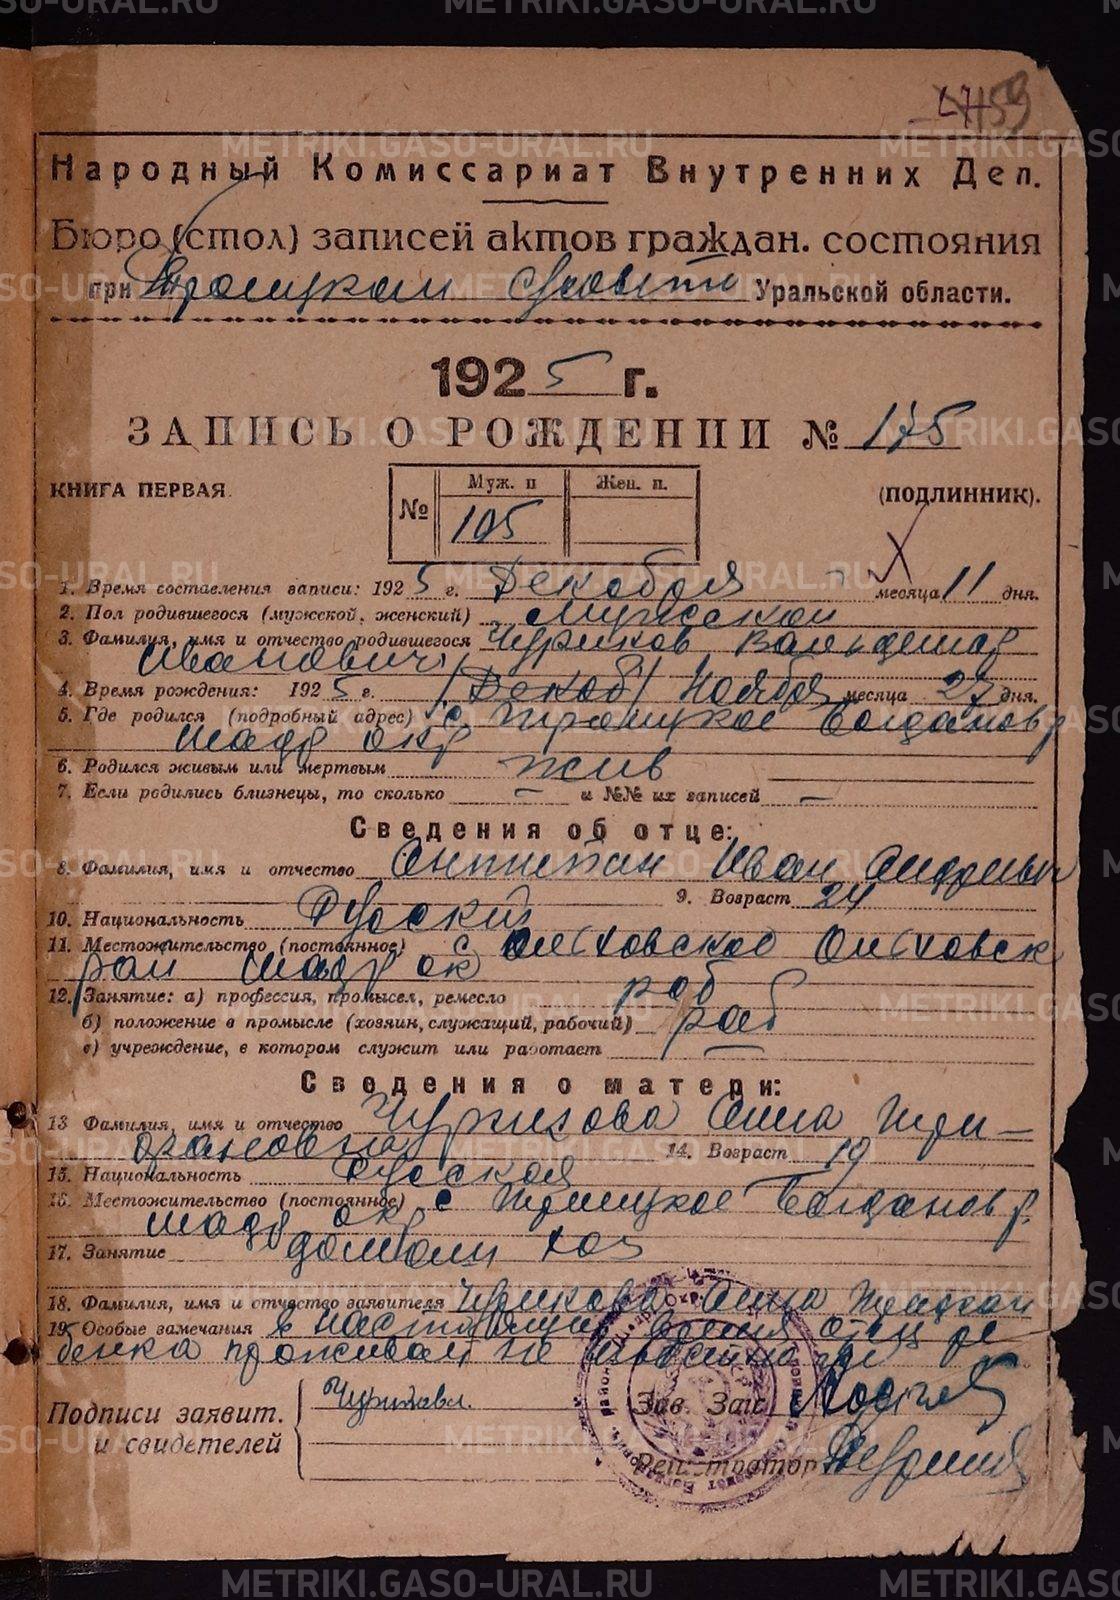 159
Народный Комиссариат Внутренних Дел.
Бюро (стол) записей актов граждан. состояния
при Троицком Уральской области.
1925 г.
ЗАПИСЬ О РОЖДЕНИИ № 175
КНИГА ПЕРВАЯ. (ПОДЛИННИК).
№ Муж. п Жен. п.
105
1. Время составления записи: 1925 г. Декабря месяца 11 дня.
2. Пол родившегося (мужской, женский) Мужской
3. Фамилия, имя и отчество родившегося Чуриков Вальдемар
Иванович
4. Время рождения: 1925 г. /Декаб/ Ноября месяца 27 дня.
5. Где родился (подробный адрес) с. Троицкое Богданов р
Шадр окр
6. Родился живым или мертвым жив
7. Если родились близнецы, то сколько — и №№ их записей —
Сведения об отце:
8. Фамилия, имя и отчество Антипин Иван
9. Возраст 24
10. Национальность Русский
11. Местожительство (постоянное) с Ольховское Ольховск
рай Шадр ок
12. Занятие: а) профессия, промысел, ремесло раб
б) положение в промысле (хозяин, служащий, рабочий) раб
в) учреждение, в котором служит или работает —
Сведения о матери:
13 Фамилия, имя и отчество Чурикова Анна
14. Возраст 19
15. Национальность Русская
16. Местожительство (постоянное) с Троицкое Богданов р.
Шадр окр
17. Занятие домаш хоз
18. Фамилия, имя и отчество заявителя Чурикова Анна
19. Особые замечания в настоящий время отец ре
бенка проживает не известно где
Подписи заявит.
и свидетелей
Чурикова.
Зав. Заг.
Регистратор
METRIKI.GASO-URAL.RU